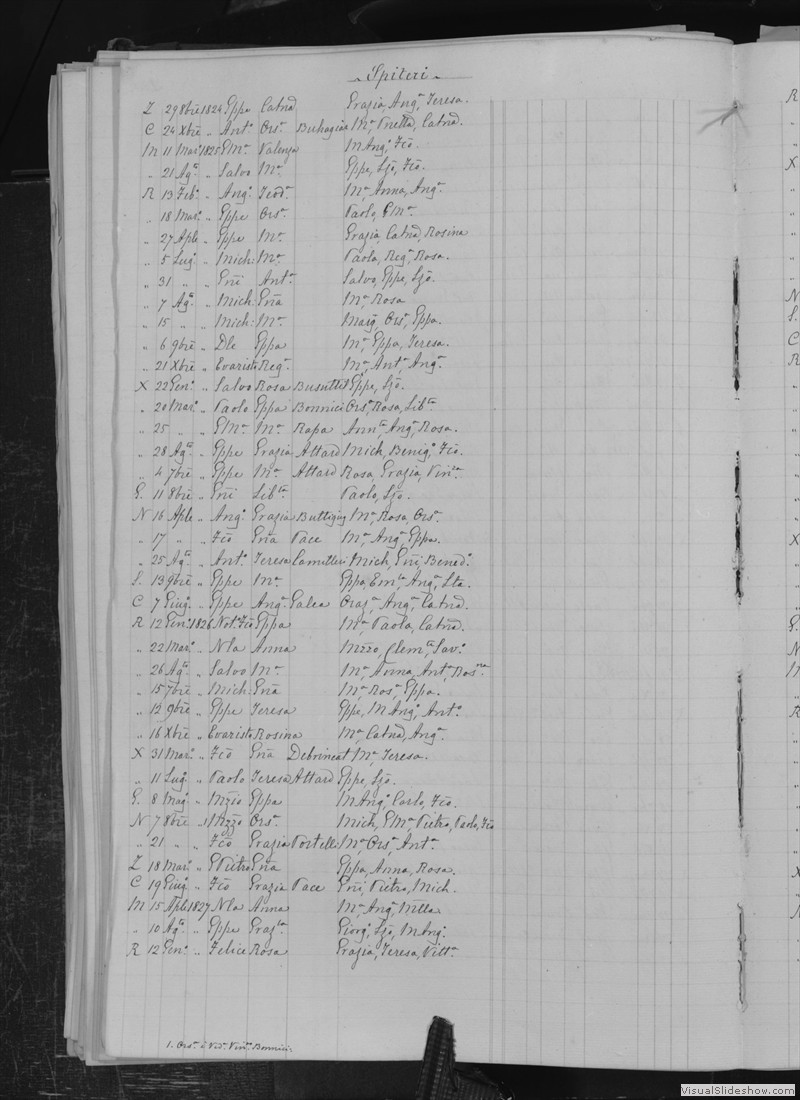 Spiteri
Z 29 8bre 1824 Eppe Catnd Grazia, Angª, Teresa.
C 24 Xbre " Antº Orsª Buhagiar Mª, Vnetta, Catnd.
M 11 Marº 1825 EMª Valenza MAngº, Fcō.
" 21 Agº " Salvo Mª Eppe, Sjō, Fcō.
R 13 Febº " Angº Teodª Mª, Anna, Angª.
" 18 Marº " Eppe Orsª Paolo, EMª.
" 27 Aple " Eppe Mª Grazia, Catnd, Rosina
" 5 Lugº " Mich: Mª Paola, Regª, Rosa.
" 31 " " Enī Antª Salvo, Eppe, Sjō.
" 7 Agº " Mich: Enā Mª Rosa
" 15 " " Mich: Mª Orsª, Eppa.
" 6 9bre " Dle Eppa Mª, Eppa, Teresa.
" 21 Xbre " Evaristo Regª Mª, Antª, Angª.
X 22 Genº " Salvo Rosa Busuttil Eppe, Sjō.
" 20 Marº " Paolo Eppa Bonnici Orsª, Rosa, Libta
" 25 " " EMª Mª Rapa Annta, Angª, Rosa.
" 28 Agº " Eppe Grazia Attard Mich, Benigº, Fcō.
" 4 7bre " Eppe Mª Attard Rosa, Grazia, Vinta.
G. 11 8bre " Enī Libta Paolo, Sjō.
N 16 Aple " Angº Grazia Buttigieg Mª, Rosa, Orsª.
" 17 " " Fcō Enā Pace Mª, Angª, Eppa.
" 25 Agº " Antº Teresa Camilleri Mich, Enī, Benedº.
S. 13 9bre " Eppe Mª Eppa, Emta, Angª, Sta.
C 7 Giugº " Eppe Angª Galea Orazª, Angª, Catnd.
R 12 Genº 1826 Notº Fcō Eppa Mª, Paola, Catnd.
" 22 Marº " Nla Anna Mzzo, Clemte, Savº.
" 26 Agº " Salvo Mª Mª, Anna, Antª, Rosna.
" 15 7bre " Mich: Enā Mª, Rosª, Eppa.
" 12 9bre " Eppe Teresa Eppe, MAngº, Antº.
" 16 Xbre " Evaristo Rosina Mª, Catnd, Angª.
X 31 Marº " Fcō Enā Debrincat Mª, Teresa.
" 11 Lugº " Paolo Teresa Attard Eppe, Sjō.
G. 8 Magº " Mzzo Eppa MAngº, Carlo, Fcō.
N 7 8bre " 1 Mzzo Orsª Mich, EMª, Pietro, Paolo, Fcō
" 21 " " Fcō Grazia Portelli Mª, Orsª, Antª.
Z 18 Marº " EPietro Enā Eppa, Anna, Rosa.
C 19 Giugº " Fcō Grazia Pace Enī, Pietro, Mich.
M 15 Aple 1827 Nla Anna Mª, Angª
" 10 Agº " Eppe Grazta Giorgº, Sjō, MAngº.
R 12 Genº " Felice Rosa Grazia, Teresa, Vittª
1. Orsª è Vedª Vinº Bonnici.
VisualSlideshow.com